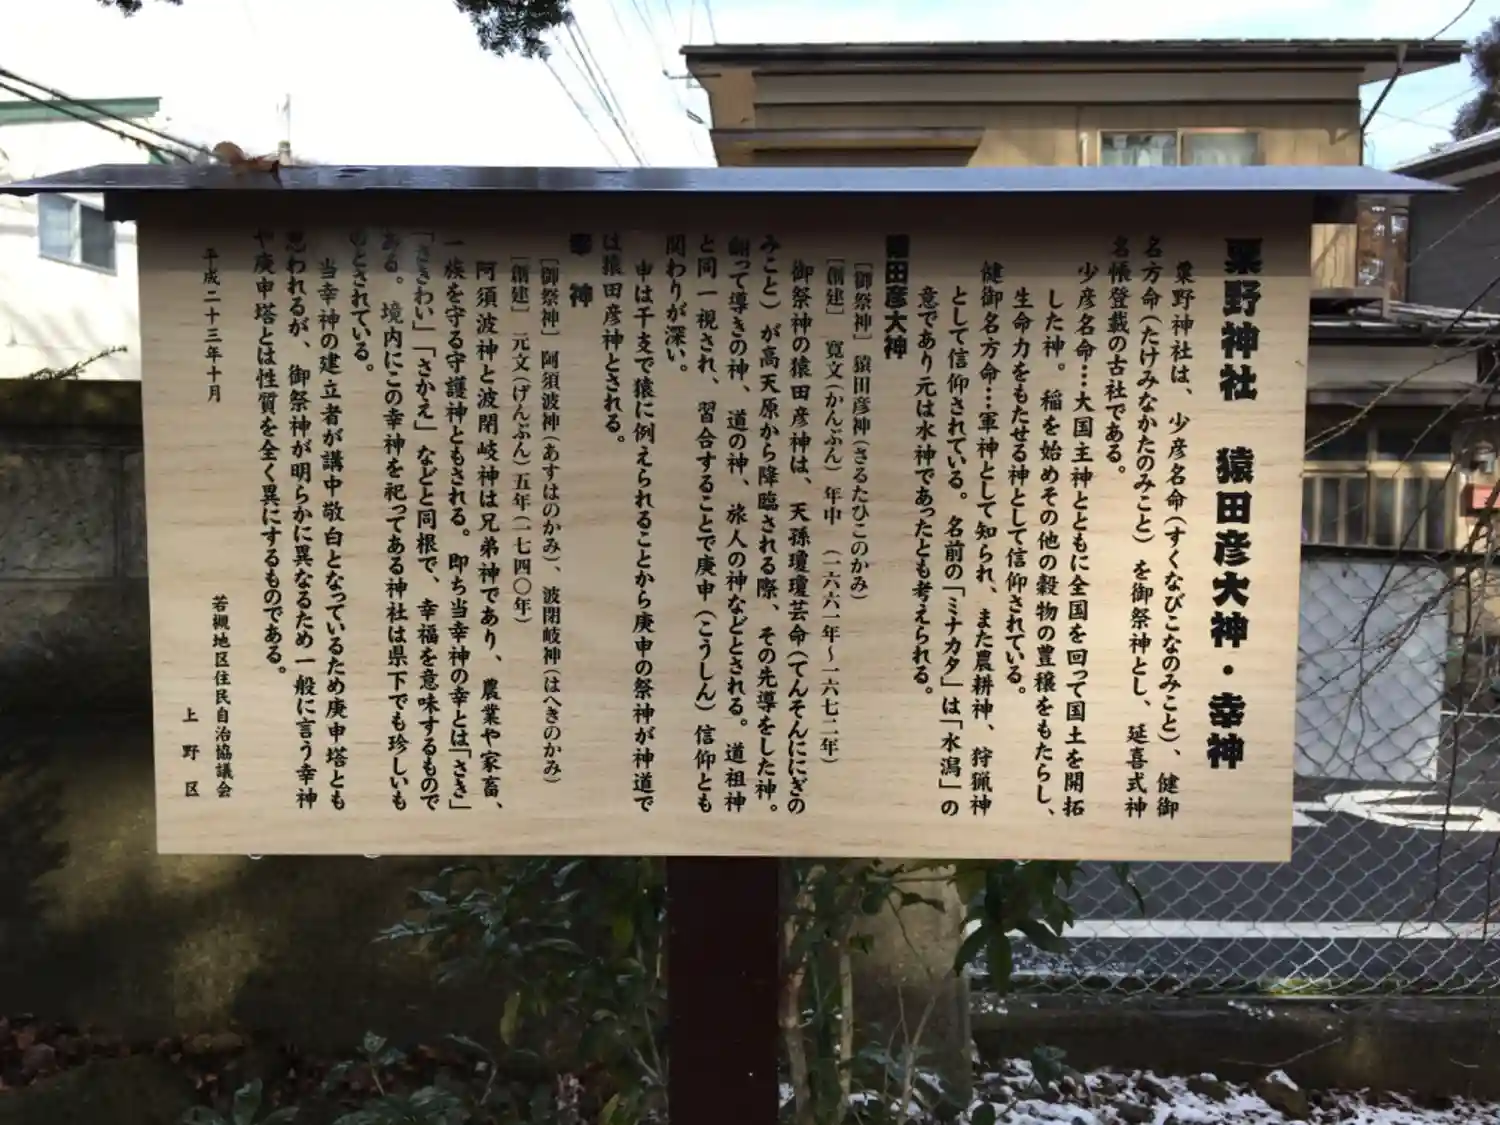 粟野神社　猿田彦大神・幸神
粟野神社は、少彦名命(すくなびこなのみこと)、健御
名方命(たけみなかたのみこと)を御祭神とし、延喜式神
名帳登載の古社である。
少彦名命…大国主神とともに全国を回って国土を開拓
した神。稲を始めその他の穀物の豊穣をもたらし、
生命力をもたせる神として信仰されている。
健御名方命…軍神として知られ、また農耕神、狩猟神
として信仰されている。名前の「ミナカタ」は「水潟」の
意であり元は水神であったとも考えられる。
猿田彦大神
［御祭神］猿田彦神(さるたひこのかみ)
［創建］　寛文(かんぶん)年中　(一六六一年～一六七二年)
御祭神の猿田彦神は、天孫瓊瓊芸命(てんそんににぎの
みこと)が高天原から降臨される際、その先導をした神。
翻って導きの神、道の神、旅人の神などとされる。道祖神
と同一視され、習合することで庚申(こうしん)信仰とも
関わりが深い。
申は干支で猿に例えられることから庚申の祭神が神道で
は猿田彦神とされる。
幸　神
［御祭神］阿須波神(あすはのかみ)、波閇岐神(はへきのかみ)
［創建］元文(げんぶん)五年(一七四〇年)
阿須波神と波閇岐神は兄弟神であり、農業や家畜、
一族を守る守護神ともされる。即ち当幸神の幸とは「さき」
「さきわい」「さかえ」などと同根で、幸福を意味するもので
ある。境内にこの幸神を祀ってある神社は県下でも珍しいも
のとされている。
当幸神の建立者が講中敬白となっているため庚申塔とも
思われるが、御祭神が明らかに異なるため一般に言う幸神
や庚申塔とは性質を全く異にするものである。
平成二十三年十月
若槻地区住民自治協議会
上野区